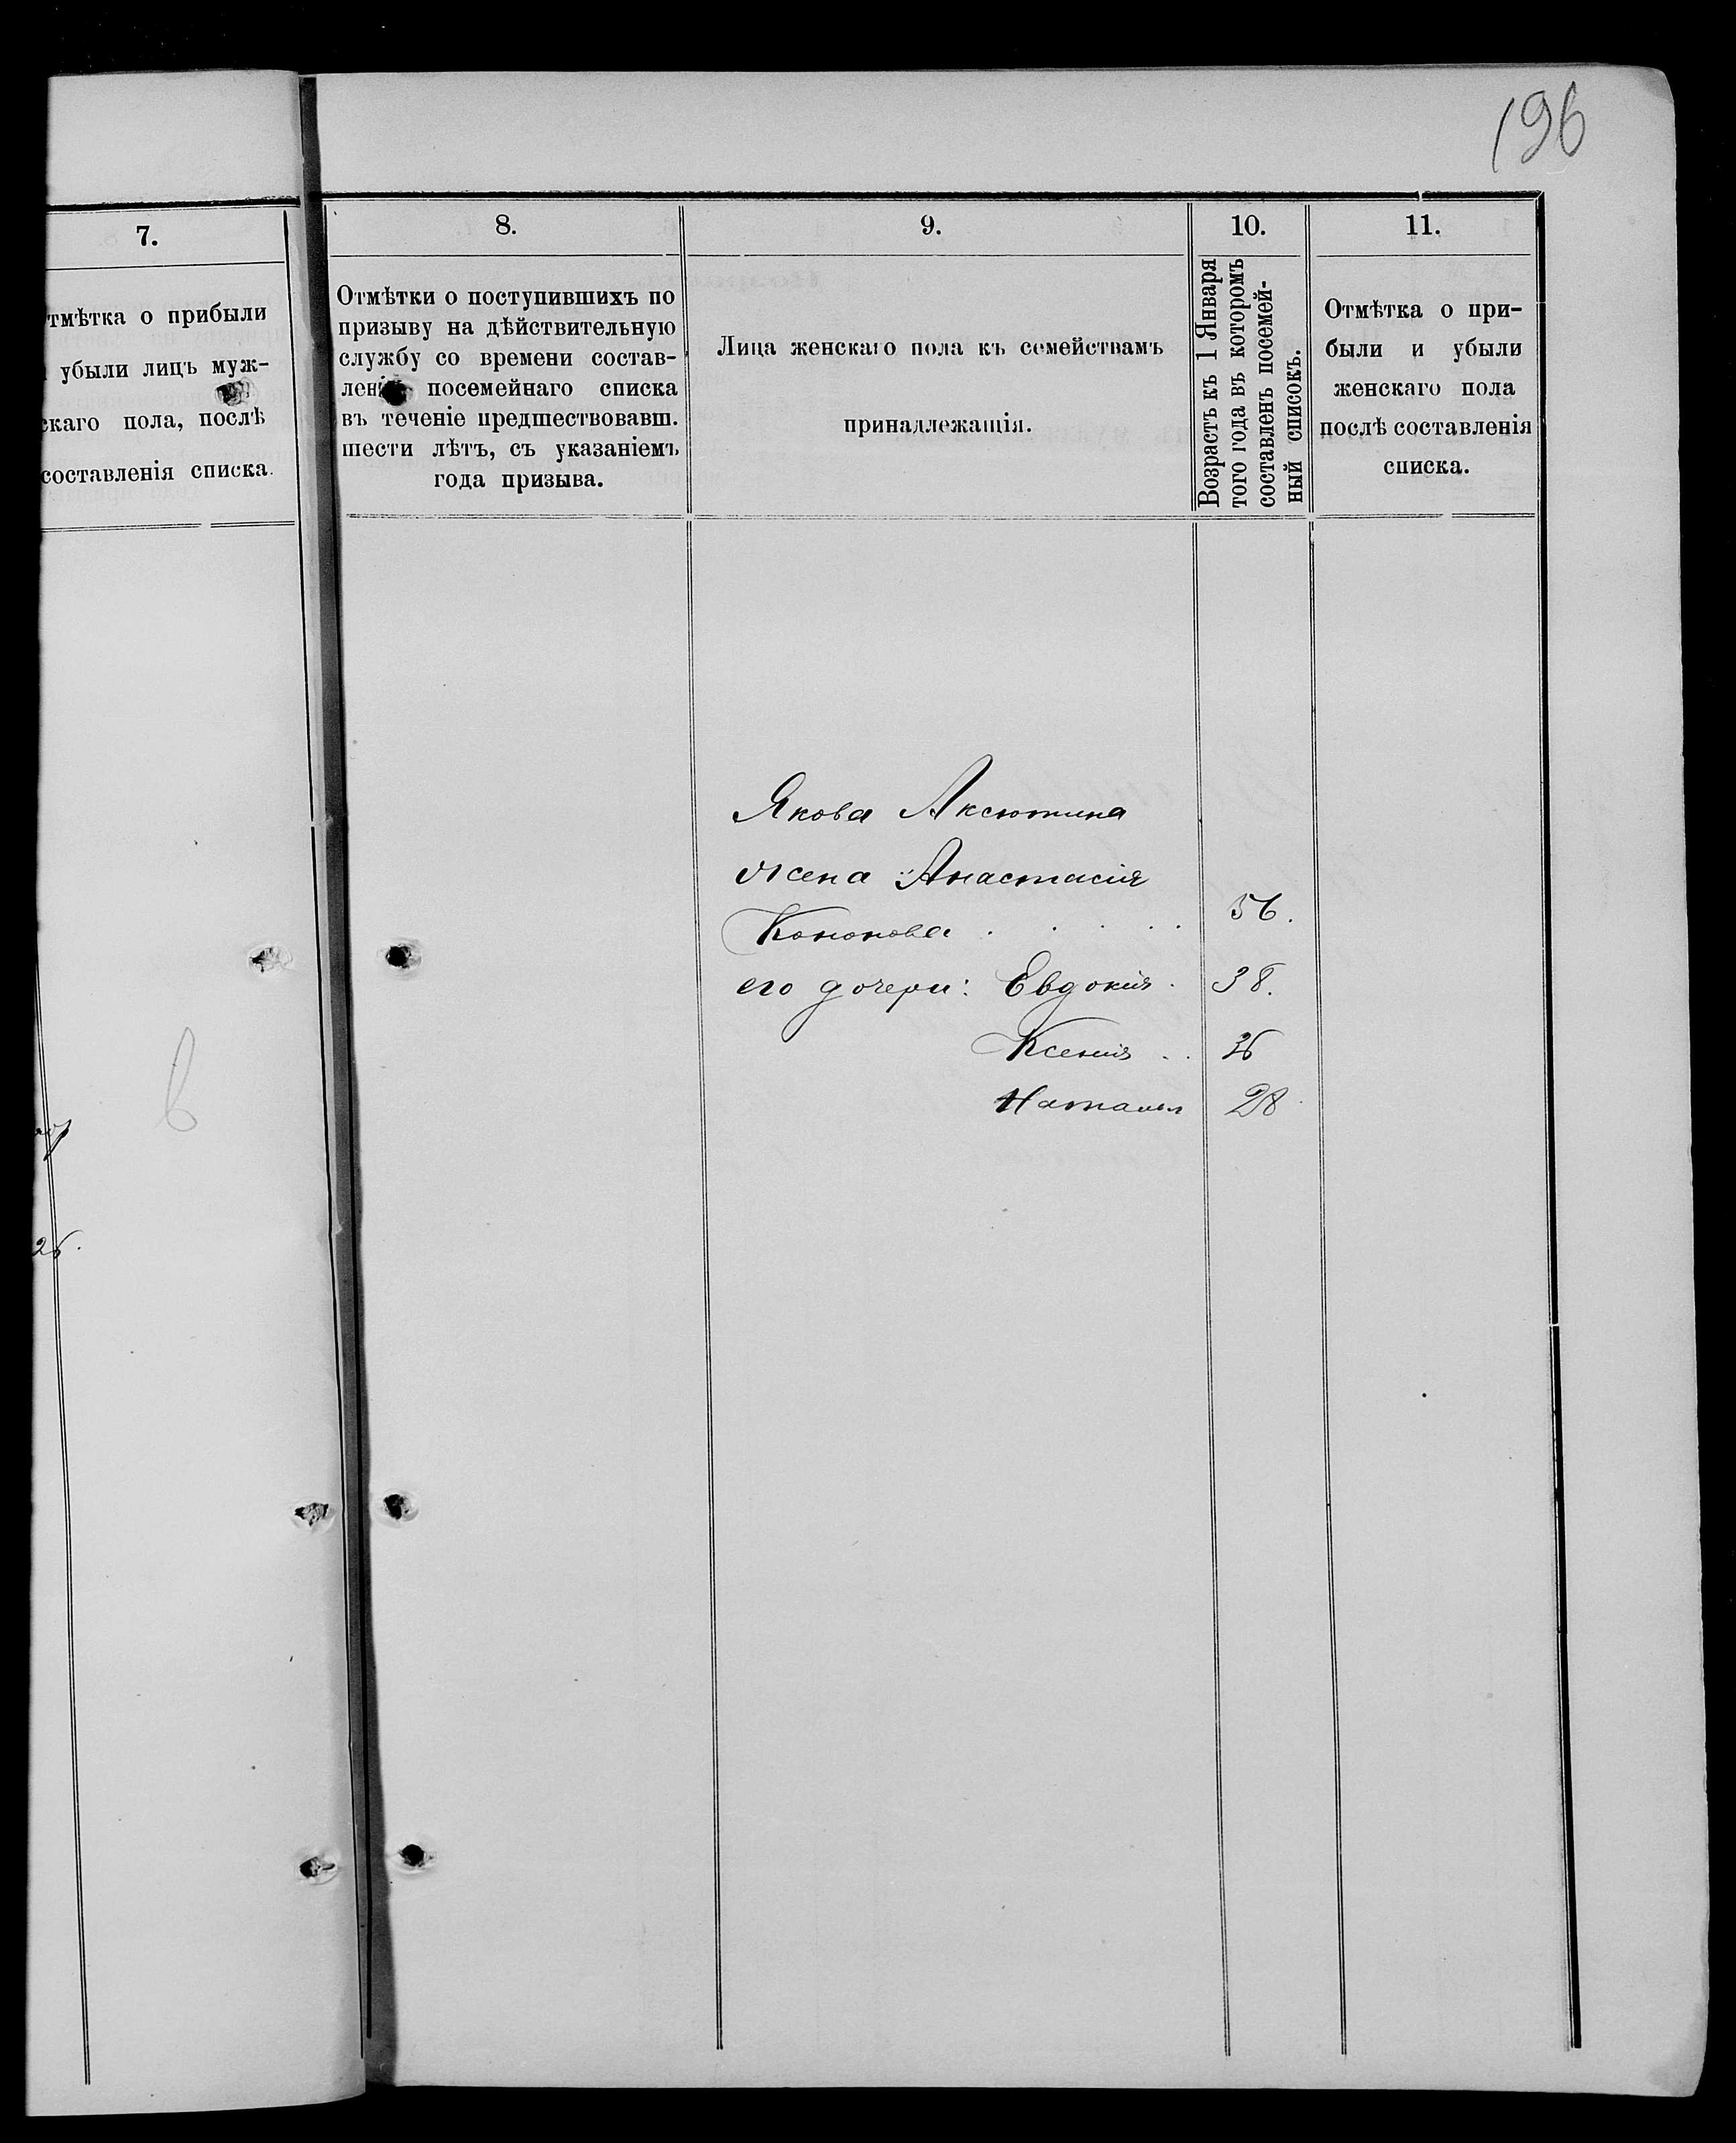 196
7.
тмѣтка о прибыли
убыли лицъ муж-
скаго пола, послѣ
составленія списка.
26.
в
8.
Отмѣтки о поступившихъ по
призыву на дѣйствительную
службу со времени состав-
лені посемейнаго списка
въ теченіе предшествовавш.
шести лѣтъ, съ указаніемъ
года призыва.
9.
Лица женскаго пола къ семействамъ
принадлежащія.
10.
Возрастъ къ 1 Января
того года въ которомъ
составленъ посемей-
ный списокъ.
11.
Отмѣтка о при-
были и убыли
женскаго пола
послѣ составленія
списка.
Якова Аксютина
жена Анастасія
Кононова . . . . . 56.
его дочери: Евдокія . 38.
Ксенія . . 36
Наталья 28